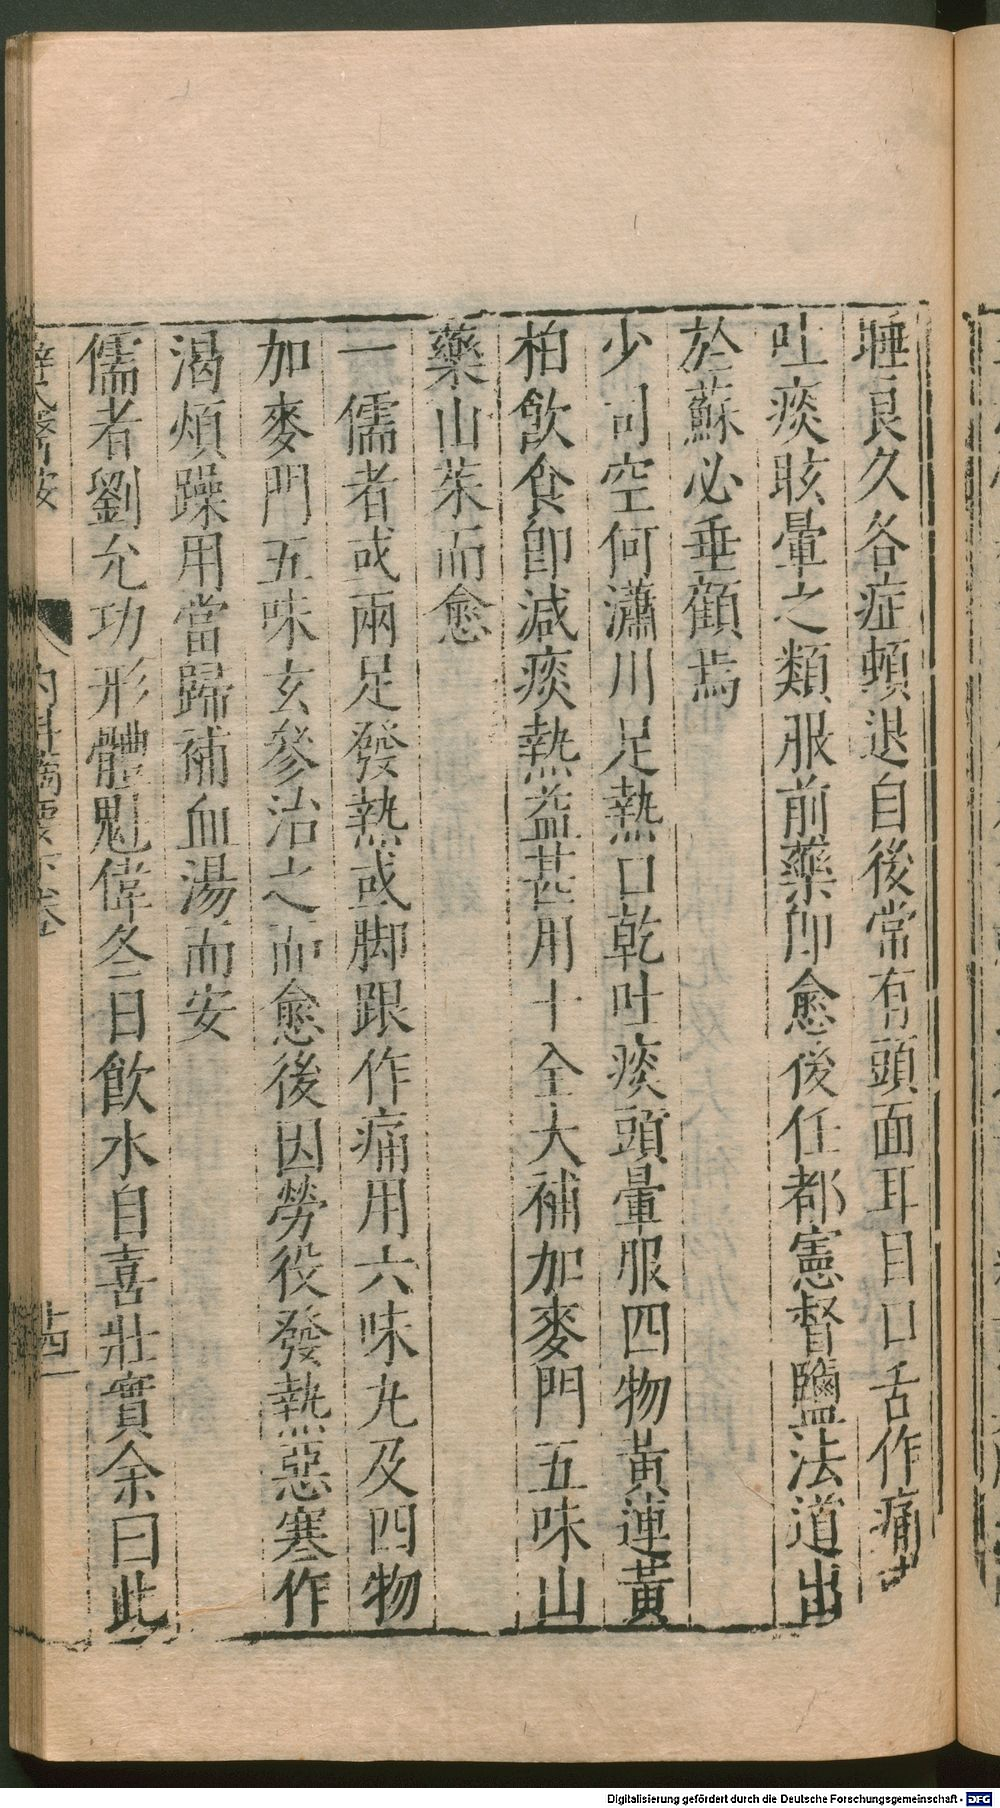 睡良久各症頓退自後常有頭面耳目口舌作痛或
吐痰眩暈之類服前藥卽愈後任都憲督鹽法道出
於蘇必垂顧焉
少司空何瀟川足熱口乾吐痰頭暈服四物黃連黃
柏飲食卽減痰熱益甚用十全大補加麥門五味山
藥山茱而愈
一儒者或兩足發熱或脚跟作痛用六味丸及四物
加麥門五味玄參治之而愈後因勞役發熱惡寒作
渴煩躁用當歸補血湯而安
儒者劉允功形體魁偉冬日飮水自喜壯實余曰此
薛氏醫按
內科摘要下卷
十四
Digitalisierung gefördert durch die Deutsche Forschungsgemeinschaft - DFG